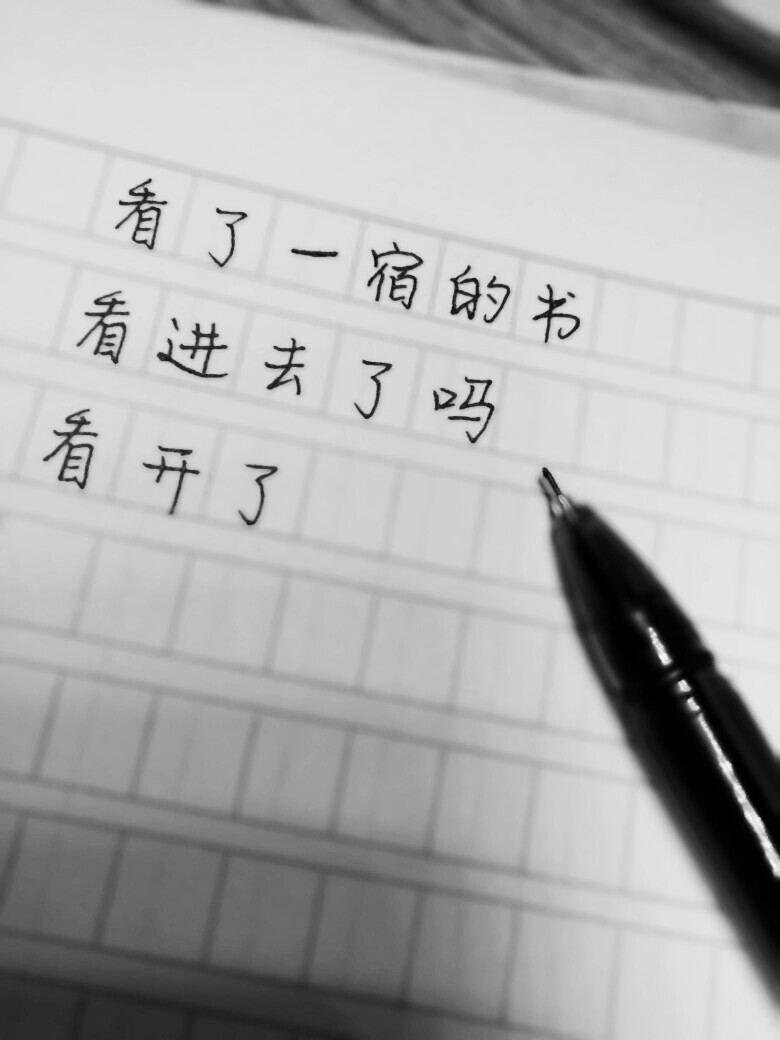 看了一宿的书
看进去了吗
看开了